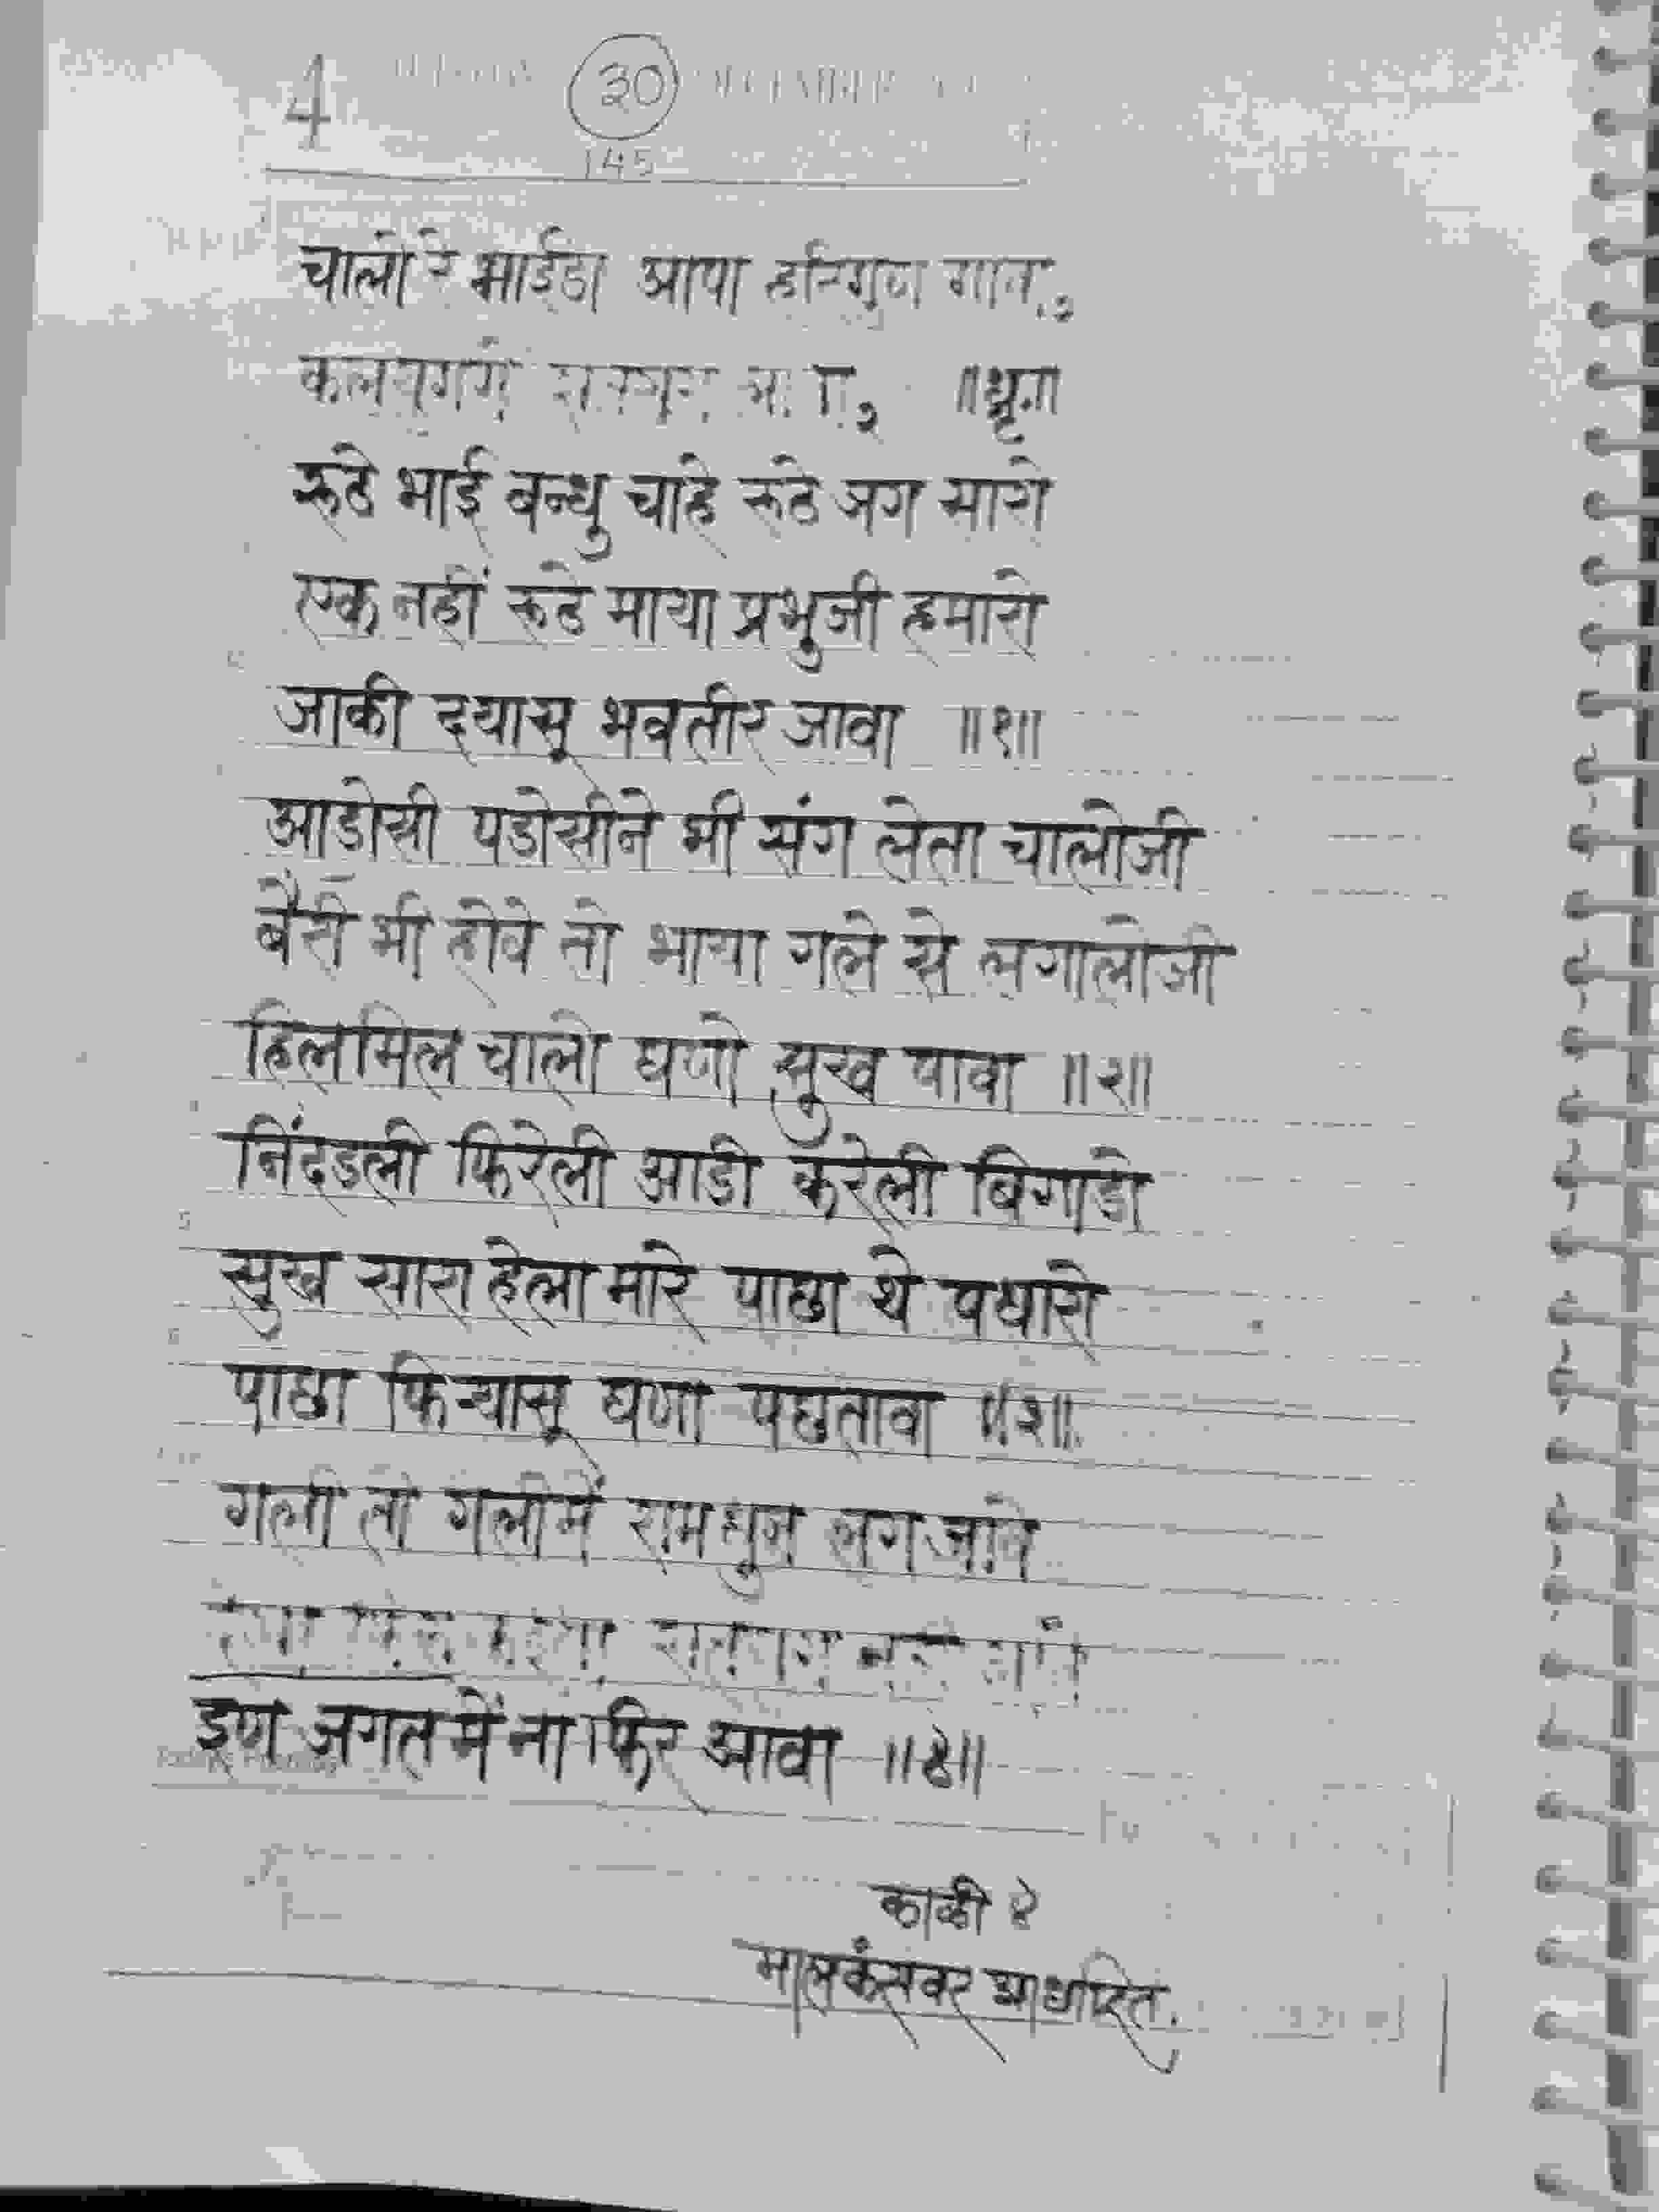 4 30
145
चालो रे भाईडा आपा हरिगुण गावा २
॥धृ॥
रूठे भाई बन्धु चाहे रूठे जग सारो
एक नहीं रूठे माया प्रभुजी हमारो
जाकी दयासू भवतीर जावा ॥१॥
आडोसी पडोसीने भी संग लेता चालोजी
बैरी भी होवे तो भाया गले से लगालोजी
हिलमिल चालो घणो सुख पावा ॥२॥
निंदडली फिरेली आडी करेली बिगाडो
सुख सारा हेला मारे पाछा थे पधारो
पाछा फिऱ्यासू घणा पछतावा ॥३॥
गली तो गलीमें रामधुन लग जावे
इण जगत में ना फिर आवा ॥४॥
काळी ४
मालकंसवर आधारित.